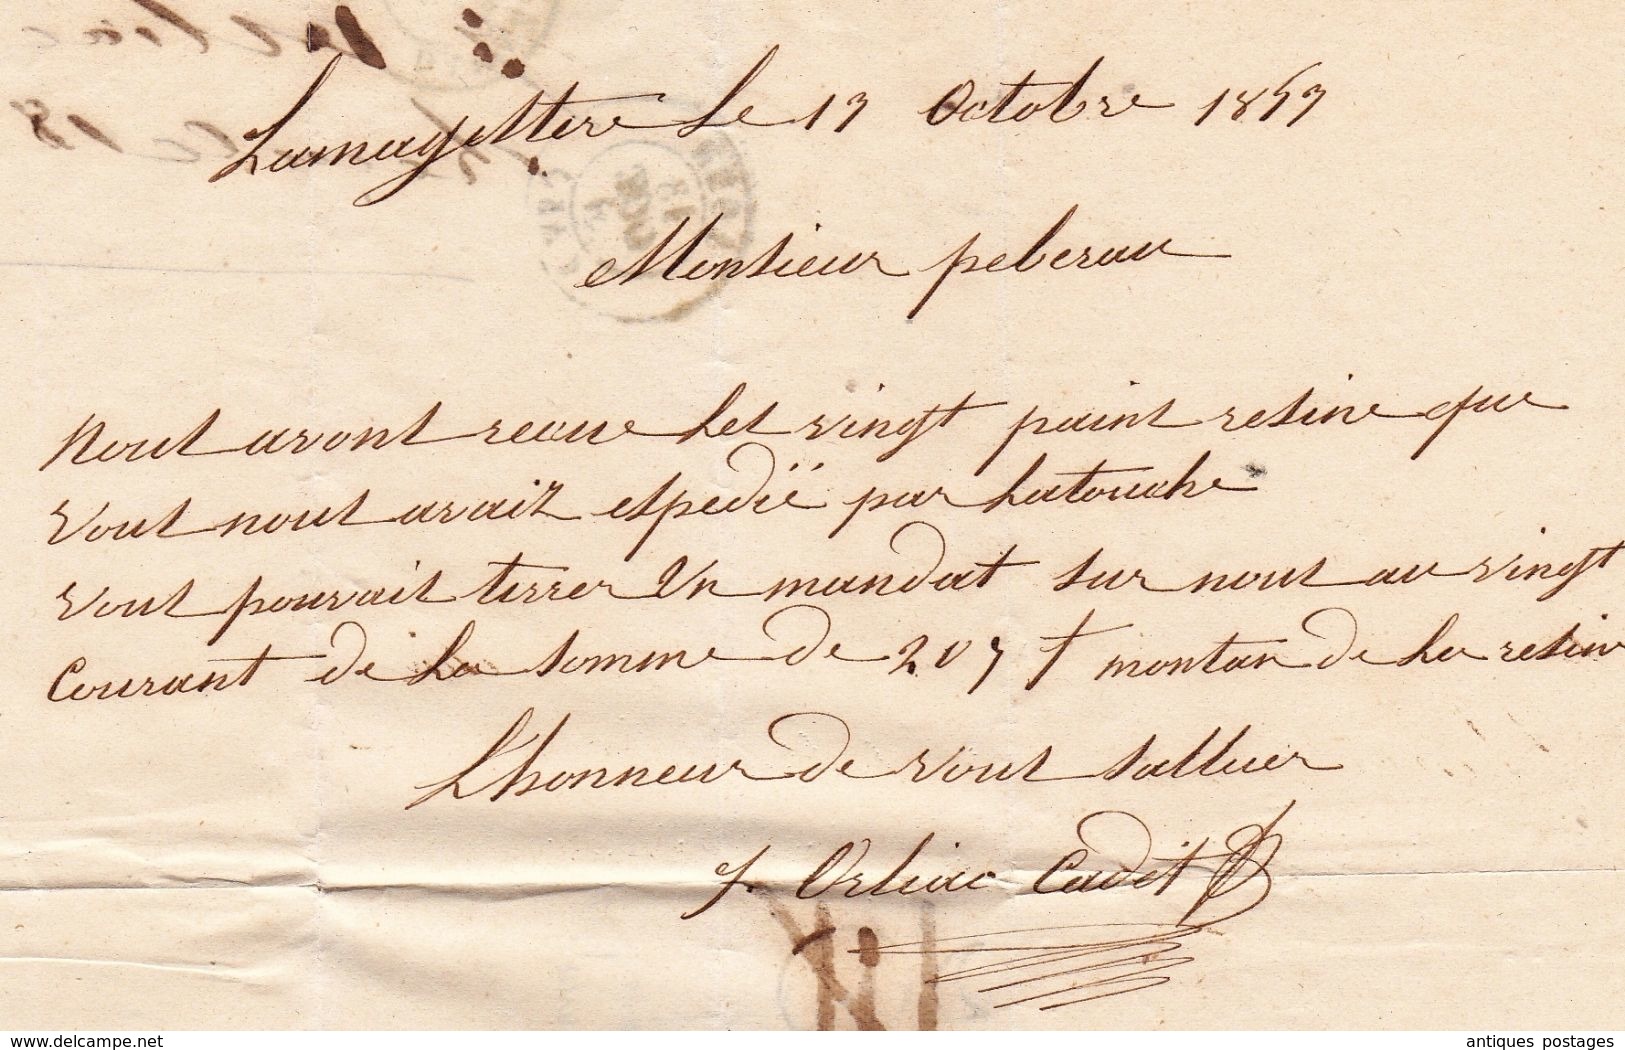 Lamagistere Le 17 Octobre 1857
Monsieur peberau
Nous avons recue Les vingt pains resine que
Vous nous avaiz espedië par Latouche
Vous pouvais tirrer Un mandat sur nous au vingt
Courant de La somme de 207 f montan de La resine
L'honneur de vous salluer
J. Orliac Cadet
delcampe.net
antiques postages